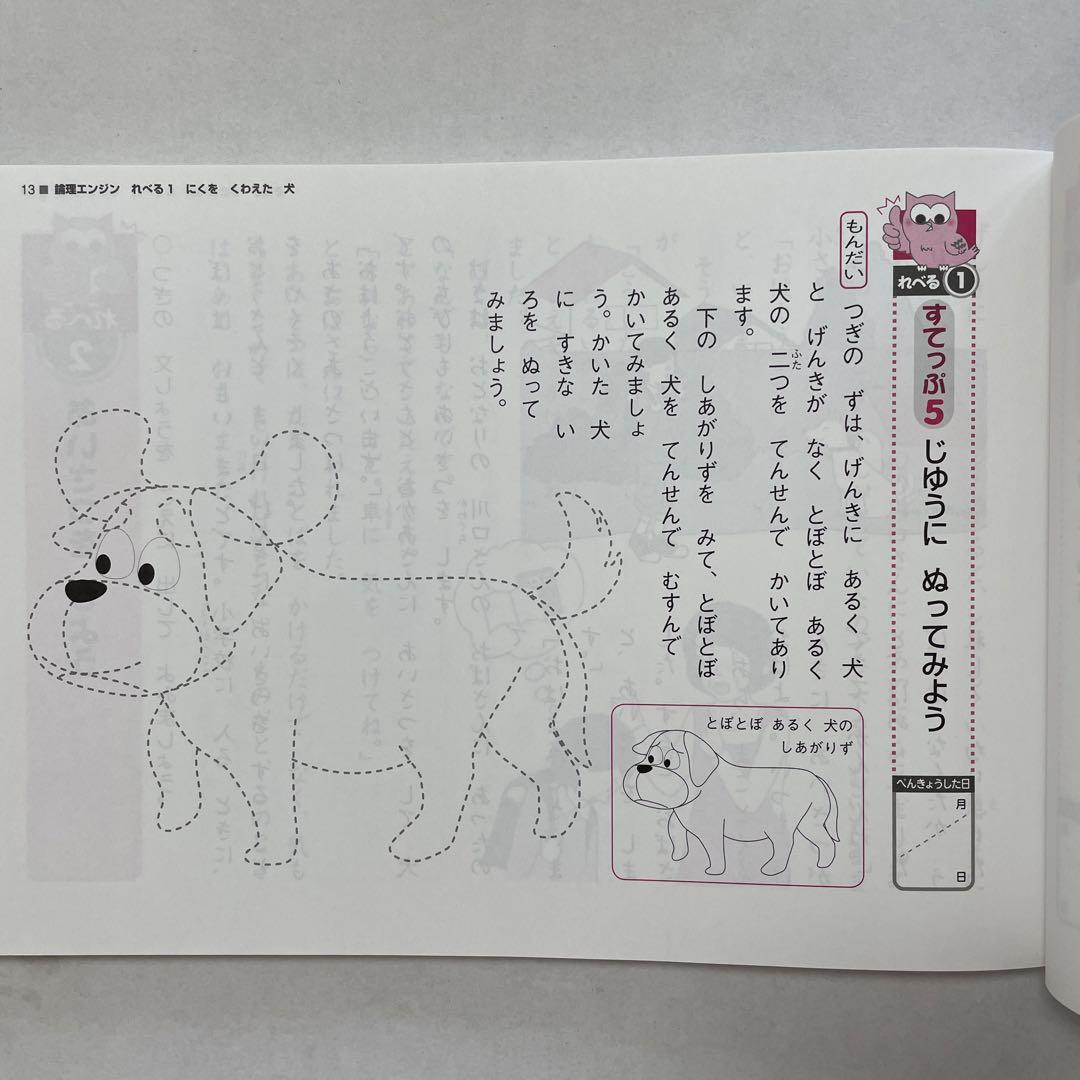 13 ■ 論理エンジン れべる1 にくを くわえた 犬
れべる 1
すてっぷ5 じゆうに ぬってみよう
べんきょうした日
月
日
もんだい
つぎの ずは、げんきに あるく 犬
と げんきが なく とぼとぼ あるく
犬の 二つを てんせんで かいてあり
ふた
ます。
下の しあがりずを みて、とぼとぼ
あるく 犬を てんせんで むすんで
かいてみましょ
う。かいた 犬
に すきな い
ろを ぬって
みましょう。
とぼとぼ あるく 犬の
しあがりず